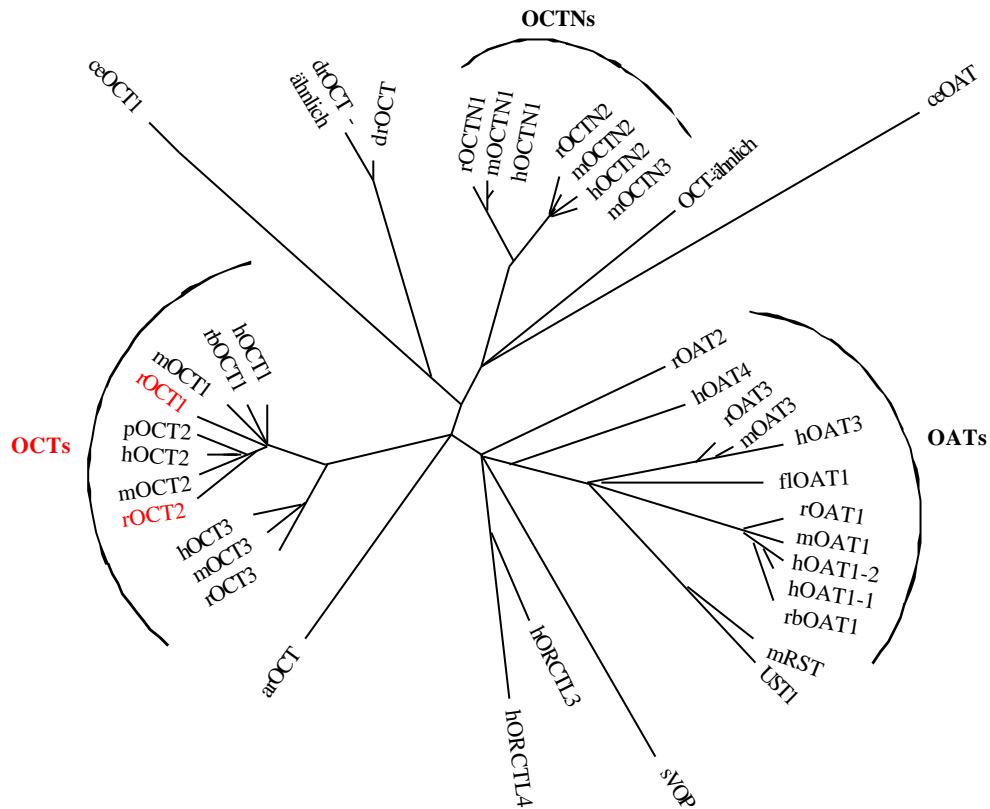 OCTNs
ceOCT1
drOCT -
ähnlich
drOCT
rOCTN1
mOCTN1
hOCTN1
rOCTN2
mOCTN2
hOCTN2
mOCTN3
OCT-ähnlich
ceOAT
hOCT1
rbOCT1
mOCT1
rOCT1
pOCT2
hOCT2
mOCT2
rOCT2
OCTs
hOCT3
mOCT3
rOCT3
arOCT
rOAT2
hOAT4
rOAT3
mOAT3
hOAT3
OATs
flOAT1
rOAT1
mOAT1
hOAT1-2
hOAT1-1
rbOAT1
mRST
UST1
hORCTL3
hORCTL4
sVOP